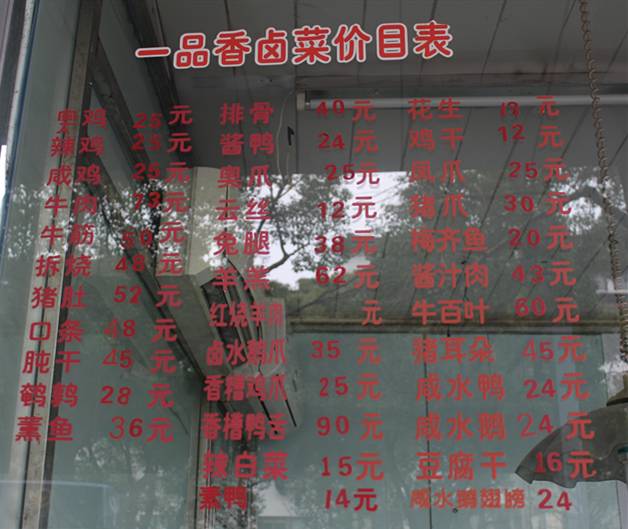 一品香卤菜价目表
奥鸡 25元 排骨 40元 花生 元
辣鸡 25元 酱鸭 24元 鸡干 12元
咸鸡 25元 奥爪 25元 凤爪 25元
牛肉 元 云丝 12元 猪爪 30元
牛筋 50元 兔腿 38元 梅齐鱼 20元
拆烧 48元 羊羔 62元 酱汁肉 43元
猪肚 52元 红烧羊肉 元 牛百叶 60元
口条 48元 卤水鹅爪 35元 猪耳朵 45元
肫干 45元 香糟鸡爪 25元 咸水鸭 24元
鹌鹑 28元 香糟鸭舌 90元 咸水鹅 24元
薰鱼 36元 辣白菜 15元 豆腐干 16元
素鸭 14元 咸水鹅翅膀 24